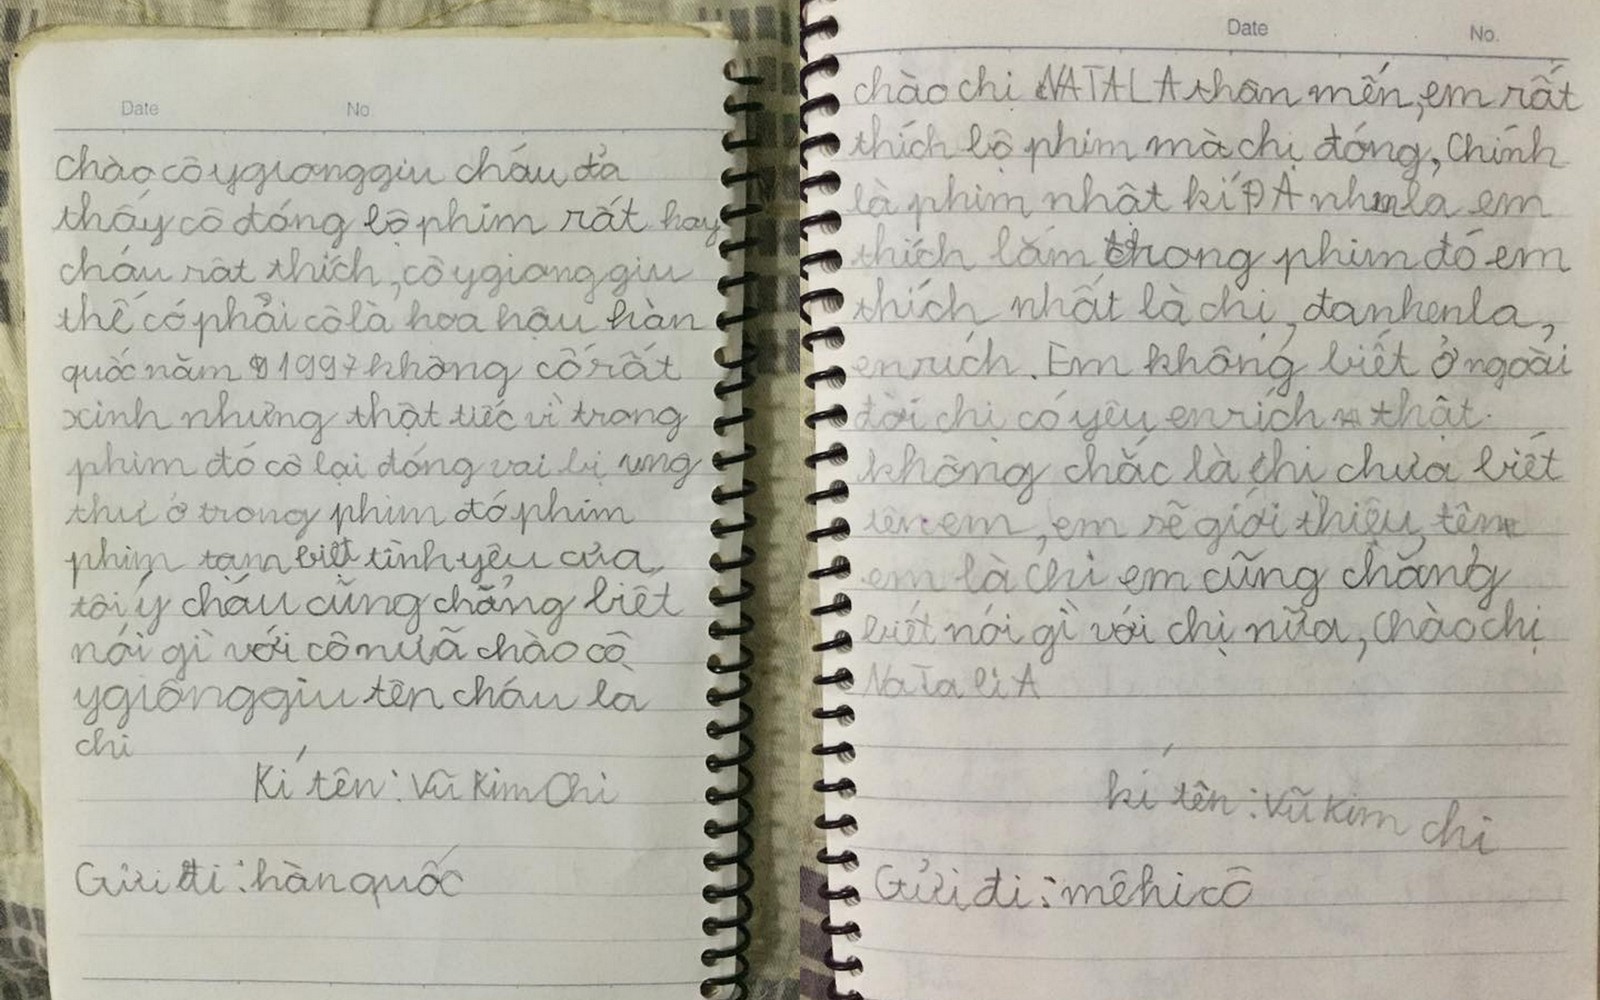 Date No
chào cô ygiongggiu cháu đã
thấy cô đóng bộ phim rất hay
cháu rât thích, cô ygiong giu
thế có phải cô là hoa hậu hàn
quốc năm 1997 không cố rất
xinh nhưng thật tiếc vì trong
phim đó cô lại đóng vai bị ung
thư ở trong phim đó phim
phim tạm biêt tình yêu của
tôi ý cháu cũng chẳng biêt
nói gì với cô nưã chào cô
ygiônggiu tên cháu là
chi
Kí tên: Vũ Kim Chi
Gửi đi: hàn quốc
Date No.
chào chi NATALA thân mến, em rất
thích bộ phim mà chị đóng, Chính
là phim nhật kí ĐA nhenla em
thích lắm trong phim đó em
thích nhất là chị, đanhenla,
enrích. Em không biết ở ngoài
đời chi có yêu enrích thật
không chắc là chi chưa biết
tên em, em sẽ giới thiệu, tên
em là Chi em cũng chẳng
biết nói gì với chị nữa, Chào chị
NaTaliA
kí tên: Vũ Kim chi
Gửi đi: mêhicô